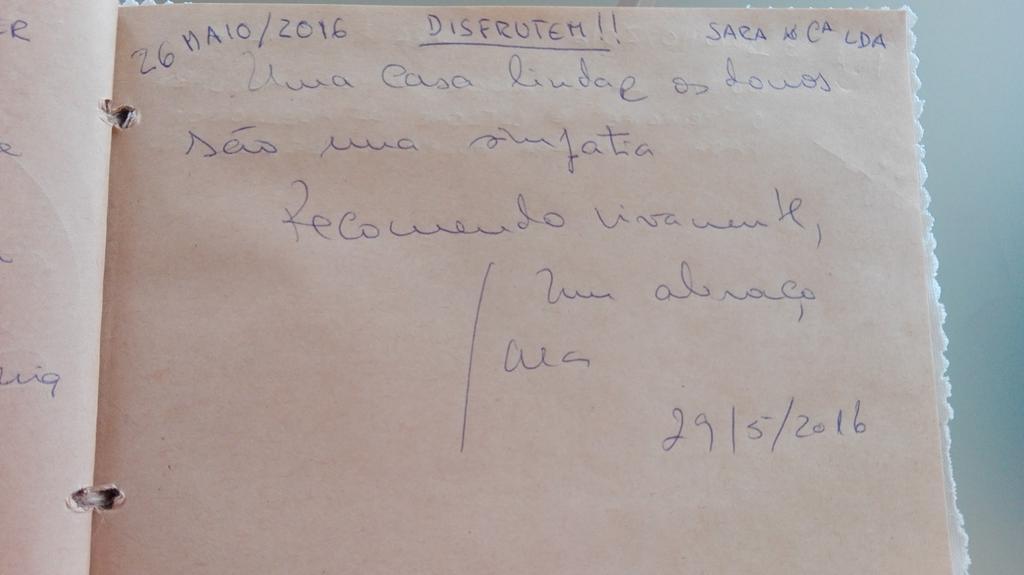 26 MAIO/2016 DISFRUTEM!! SARA Cª LDA
Uma casa linda e os donos
são uma simpatia
Recomendo vivamente,
Um abraço
29/5/2016